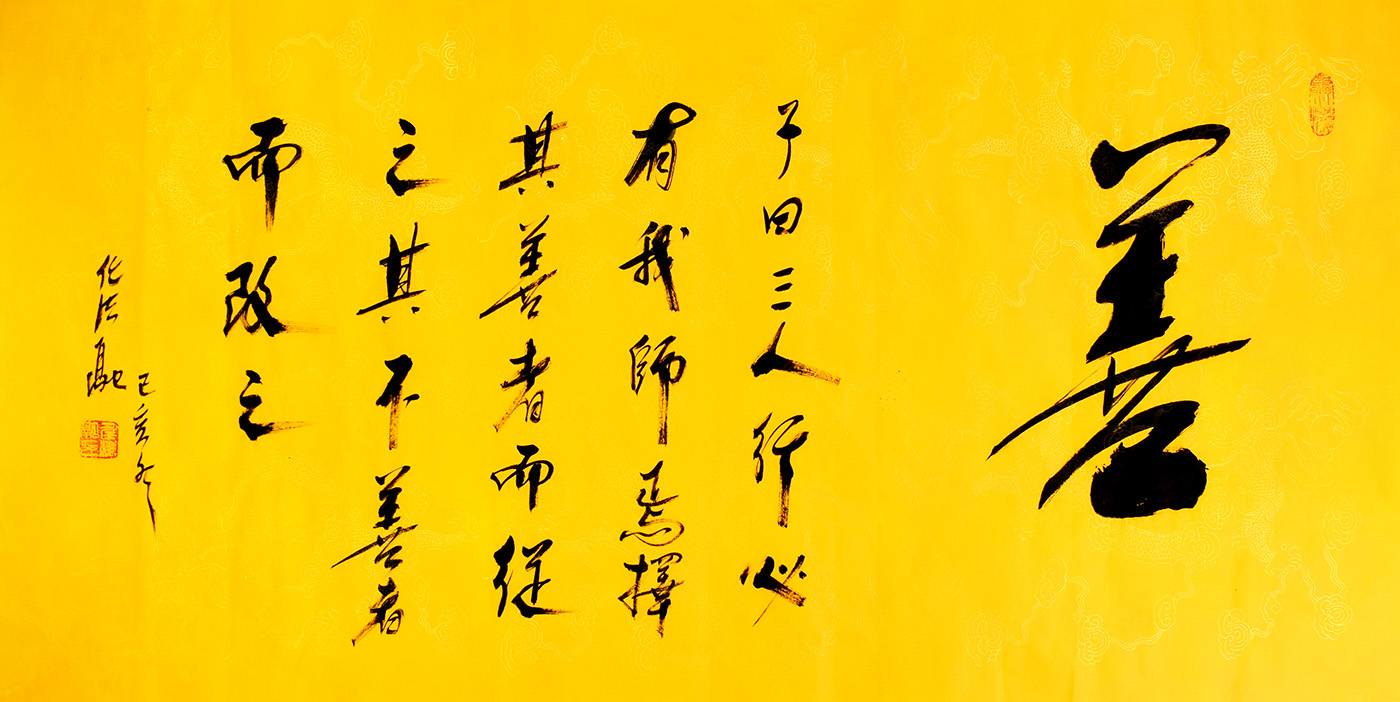 善
子曰三人行必
有我師焉擇
其善者而從
之其不善者
而改之
己亥冬
任法融